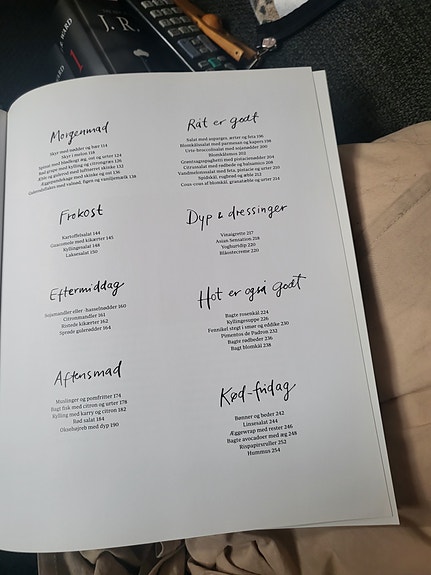 J. R.
WARD
1
Morgenmad
Skyr med nødder og bær 114
Skyr i melon 118
Spinat med blødkogt æg, ost og urter 124
Rød grape med kylling og citrongræs 126
Æble og gulerod med lufttørret skinke 132
Æggepandekage med skinke og ost 136
Gulerodsflakes med valnød, figen og vaniljemælk 138
Frokost
Kartoffelsalat 144
Guacomole med kikærter 145
Kyllingesalat 148
Laksesalat 150
Eftermiddag
Sojamandler eller -hasselnødder 160
Citronmandler 161
Ristede kikærter 162
Sprøde gulerødder 164
Aftensmad
Muslinger og pomfritter 174
Bagt fisk med citron og urter 178
Kylling med karry og citron 182
Rød salat 184
Oksehøjreb med dyp 190
Råt er godt
Salat med asparges, ærter og feta 196
Blomkålssalat med parmesan og kapers 198
Urte-broccolisalat med sojanødder 200
Blomkålsmos 202
Grøntsagsspaghetti med pistacienødder 204
Citronsalat med rødbede og balsamico 208
Vandmelonssalat med feta, pistacie og urter 210
Spidskål, rugbrød og æble 212
Cous-cous af blomkål, granatæble og urter 214
Dyp & dressinger
Vinaigrette 217
Asian Sensation 218
Yoghurtdip 220
Blåostscreme 220
Hot er også godt
Bagte rosenkål 224
Kyllingesuppe 226
Fennikel stegt i smør og eddike 230
Pimentos de Padron 232
Bagte rødbeder 236
Bagt blomkål 238
Kød-fridag
Bønner og beder 242
Linsesalat 244
Æggewrap med rester 246
Bagte avocadoer med æg 248
Rispapirsruller 252
Hummus 254